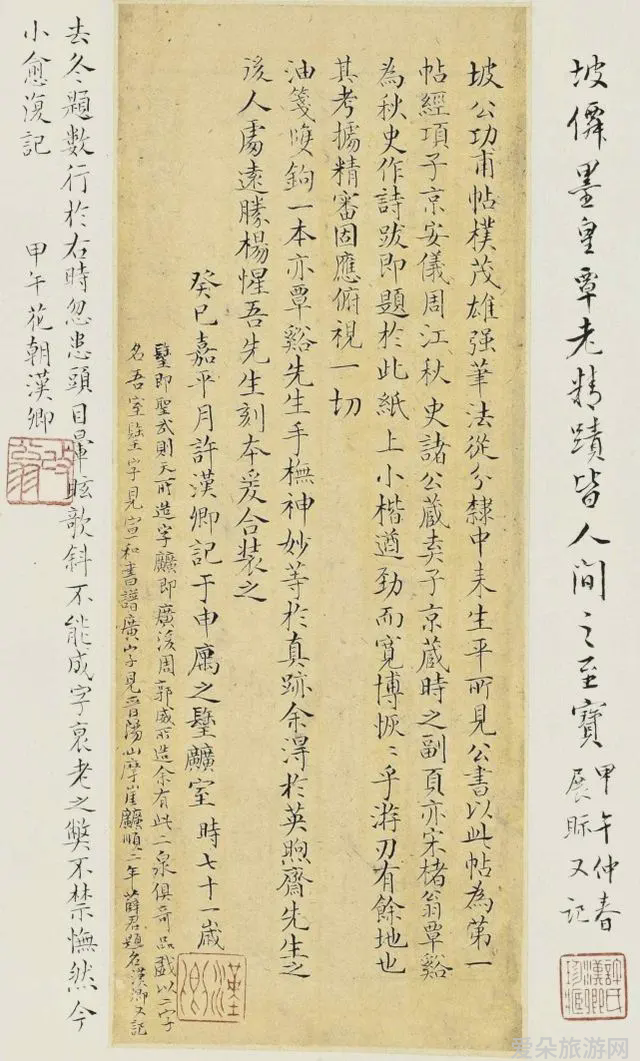 坡僊墨皇覃老精蹟皆人間之至寶
甲午仲春
展眎又記
許氏漢卿珍藏
坡公功甫帖樸茂雄强筆法從分隸中来生平所見公書以此帖為第一
帖經項子京安儀周江秋史諸公藏弆子京藏時之副頁亦宋楮翁覃谿
為秋史作詩跋即題於此紙上小楷遒勁而寬博恢〻乎游刃有餘地也
其考據精審固應俯視一切
油箋雙鉤一本亦覃谿先生手橅神妙等於真跡余淂於英煦齋先生之
後人處遠勝楊惺吾先生刻本爰合裝之
癸巳嘉平月許漢卿記于申寓之𨤲𪋻室 時七十一歲
即聖武則天所造字即廣後周郭威所造余有此二泉俱奇品戲以二字
名吾室字見宣和書譜廣字見晉陽山摩崖順二年薛君題名漢卿又記
去冬題數行於右時忽患頭目暈眩欹斜不能成字衰老之弊不禁憮然今
小愈復記
甲午花朝漢卿
爱朵旅游网